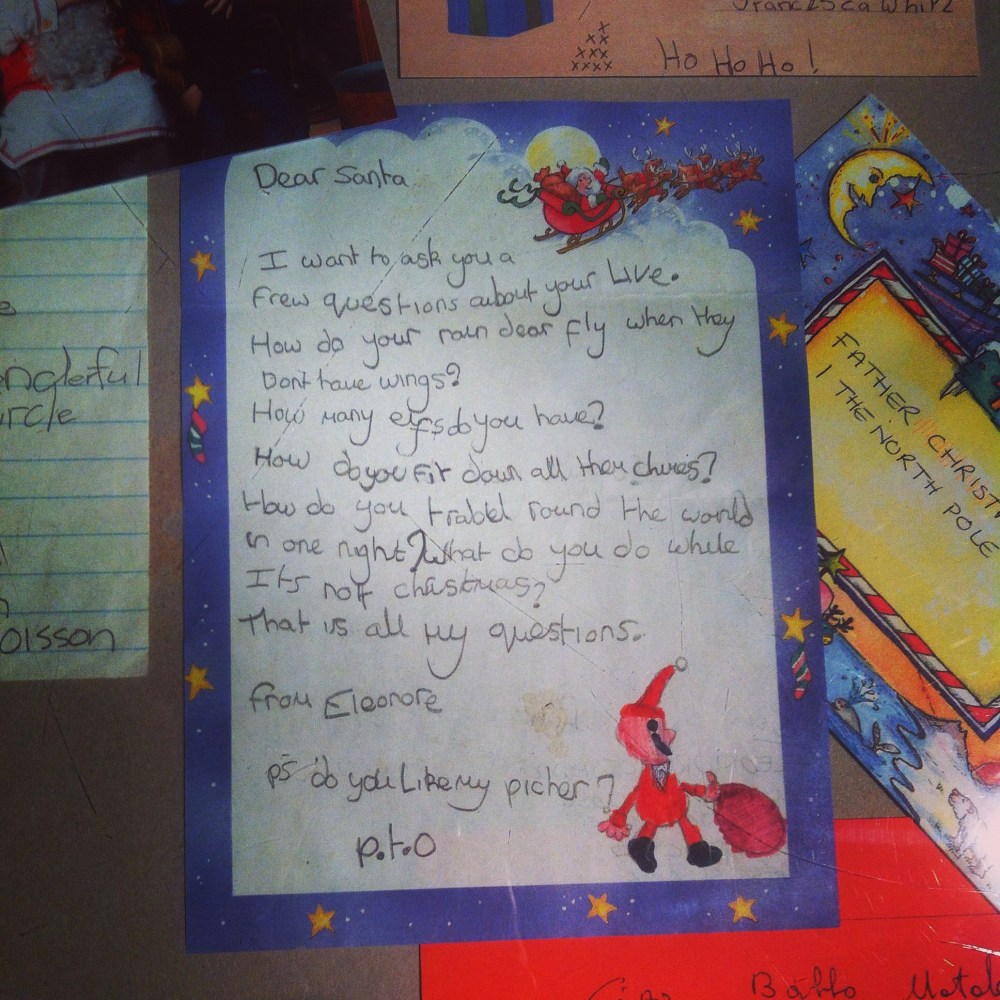 Ho Ho Ho!
Dear Santa
I want to ask you a
frew questions about your Live.
How do your rain dear fly when they
Dont have wings?
How many elfs do you have?
How do you fit down all them
How do you trabel round the world
in one night? What do you do while
Its not christmas?
That is all my questions.
from Eleonore
ps do you Like my picher?
p.t.o
FATHER CHRISTM
1 THE NORTH POLE
nderful
urcle
oisson
Babbo Natal